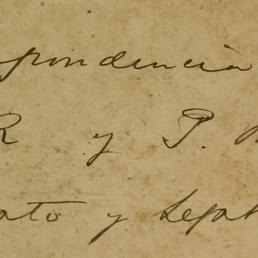 spondencia
R y P.
ato y Legat